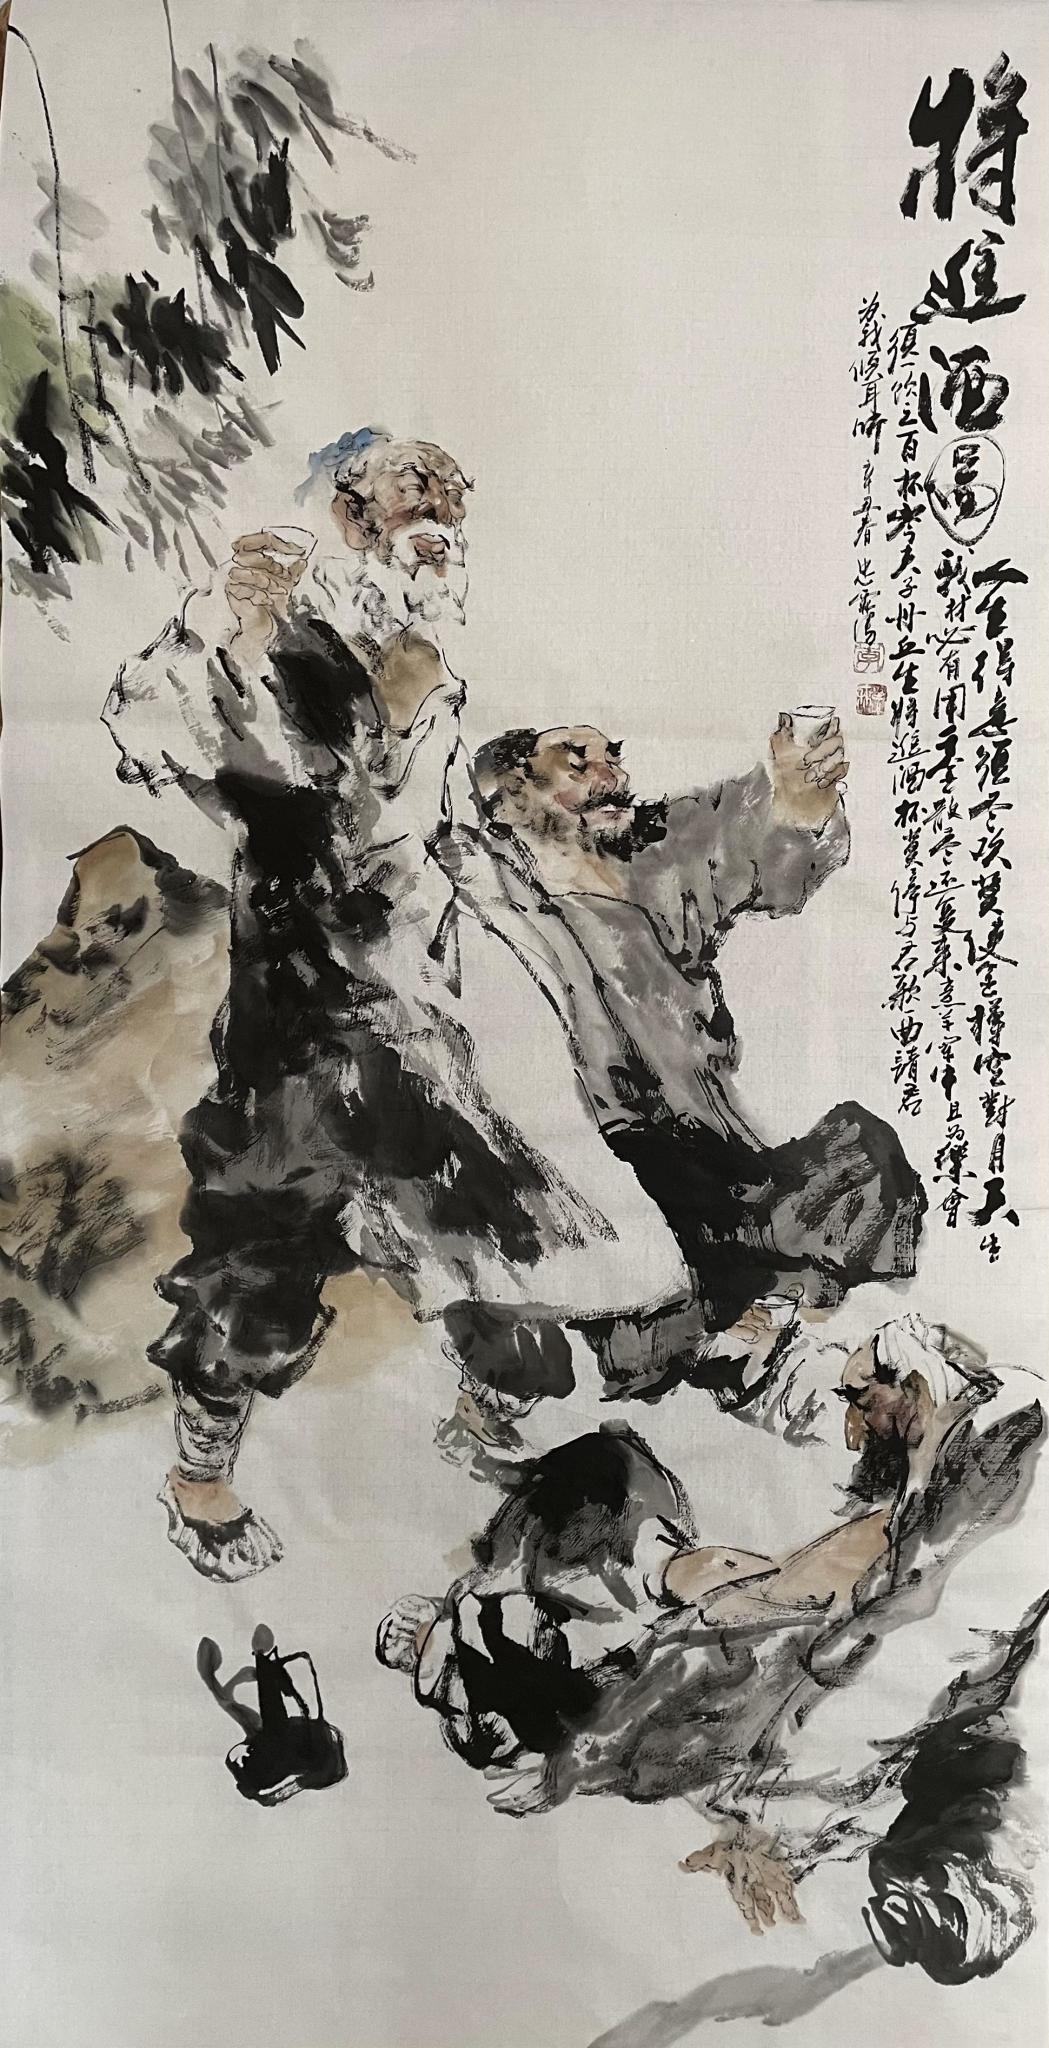 將進酒圖
人生得意須盡歡莫使金樽空對月天生
我材必有用千金散盡還復來烹羊宰牛且為樂會
須一飲三百杯岑夫子丹丘生將進酒杯莫停与君歌一曲請君
為我傾耳听 辛丑春 忠霖